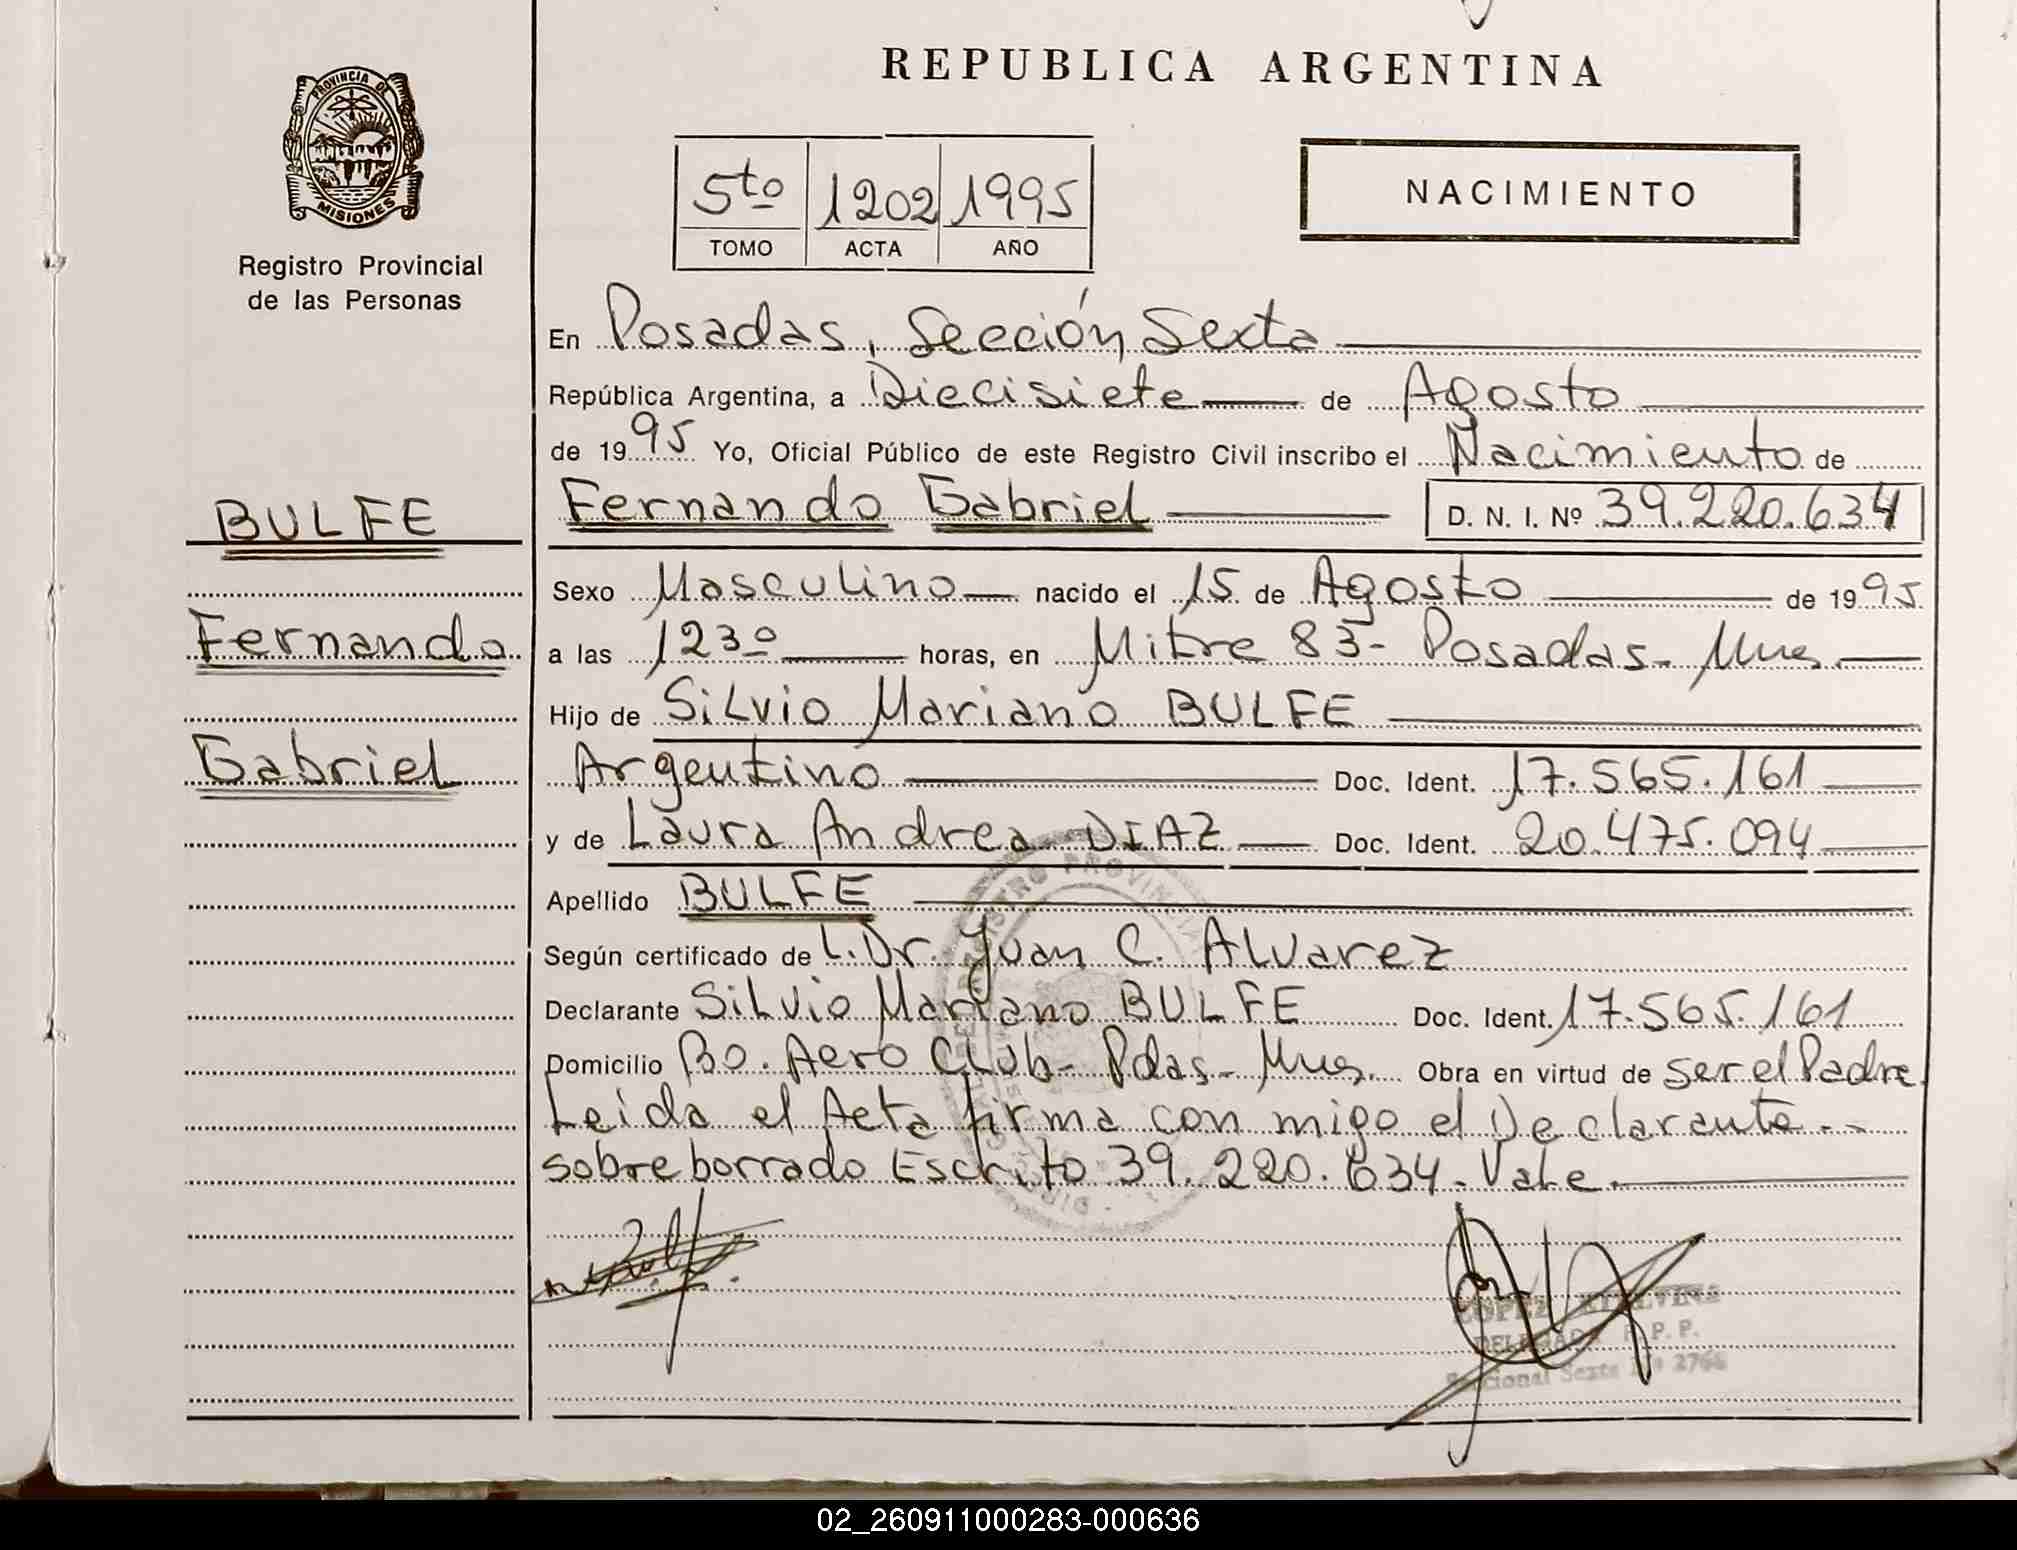 REPUBLICA ARGENTINA
PROVINCIA DE
MISIONES
Registro Provincial
de las Personas
5to 1202 1995
TOMO ACTA AÑO
NACIMIENTO
En Posadas, Sección Sexta
República Argentina, a Diecisiete de Agosto
de 1995 Yo, Oficial Público de este Registro Civil inscribo el Nacimiento de
BULFE
Fernando Gabriel D. N. I. Nº 39.220.634
Sexo Masculino nacido el 15 de Agosto de 1995
Fernando
a las 1230 horas, en Mitre 83- Posadas- Mnes.
Hijo de Silvio Mariano BULFE
Gabriel
Argentino Doc. Ident. 17.565.161
y de Laura Andrea DIAZ Doc. Ident. 20.475.094
Apellido BULFE
Según certificado de L. Dr. Juan C. Alvarez
Declarante Silvio Mariano BULFE Doc. Ident. 17.565.161
Domicilio Bo. Aero Club- Pdas- Mnes. Obra en virtud de ser el Padre
Leida el Acta firma con migo el Declarante..
sobreborrado Escrito 39.220.634. Vale.
REGISTRO PROVINCIAL
LOPEZ
DELEGADA R. P. P.
Seccional Sexta Nº
02_260911000283-000636